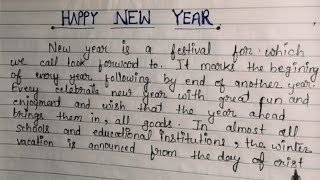 HAPPY NEW YEAR
New year is a festival for which
we call look forward to. It marks the begining
of every year following by end of another year.
Every celebrate new year with great fun and
enjoyment and wish that the year ahead
brings them in, all goods. In almost all
schools and educational institutions, the winter
vacation is announced from the day of crist